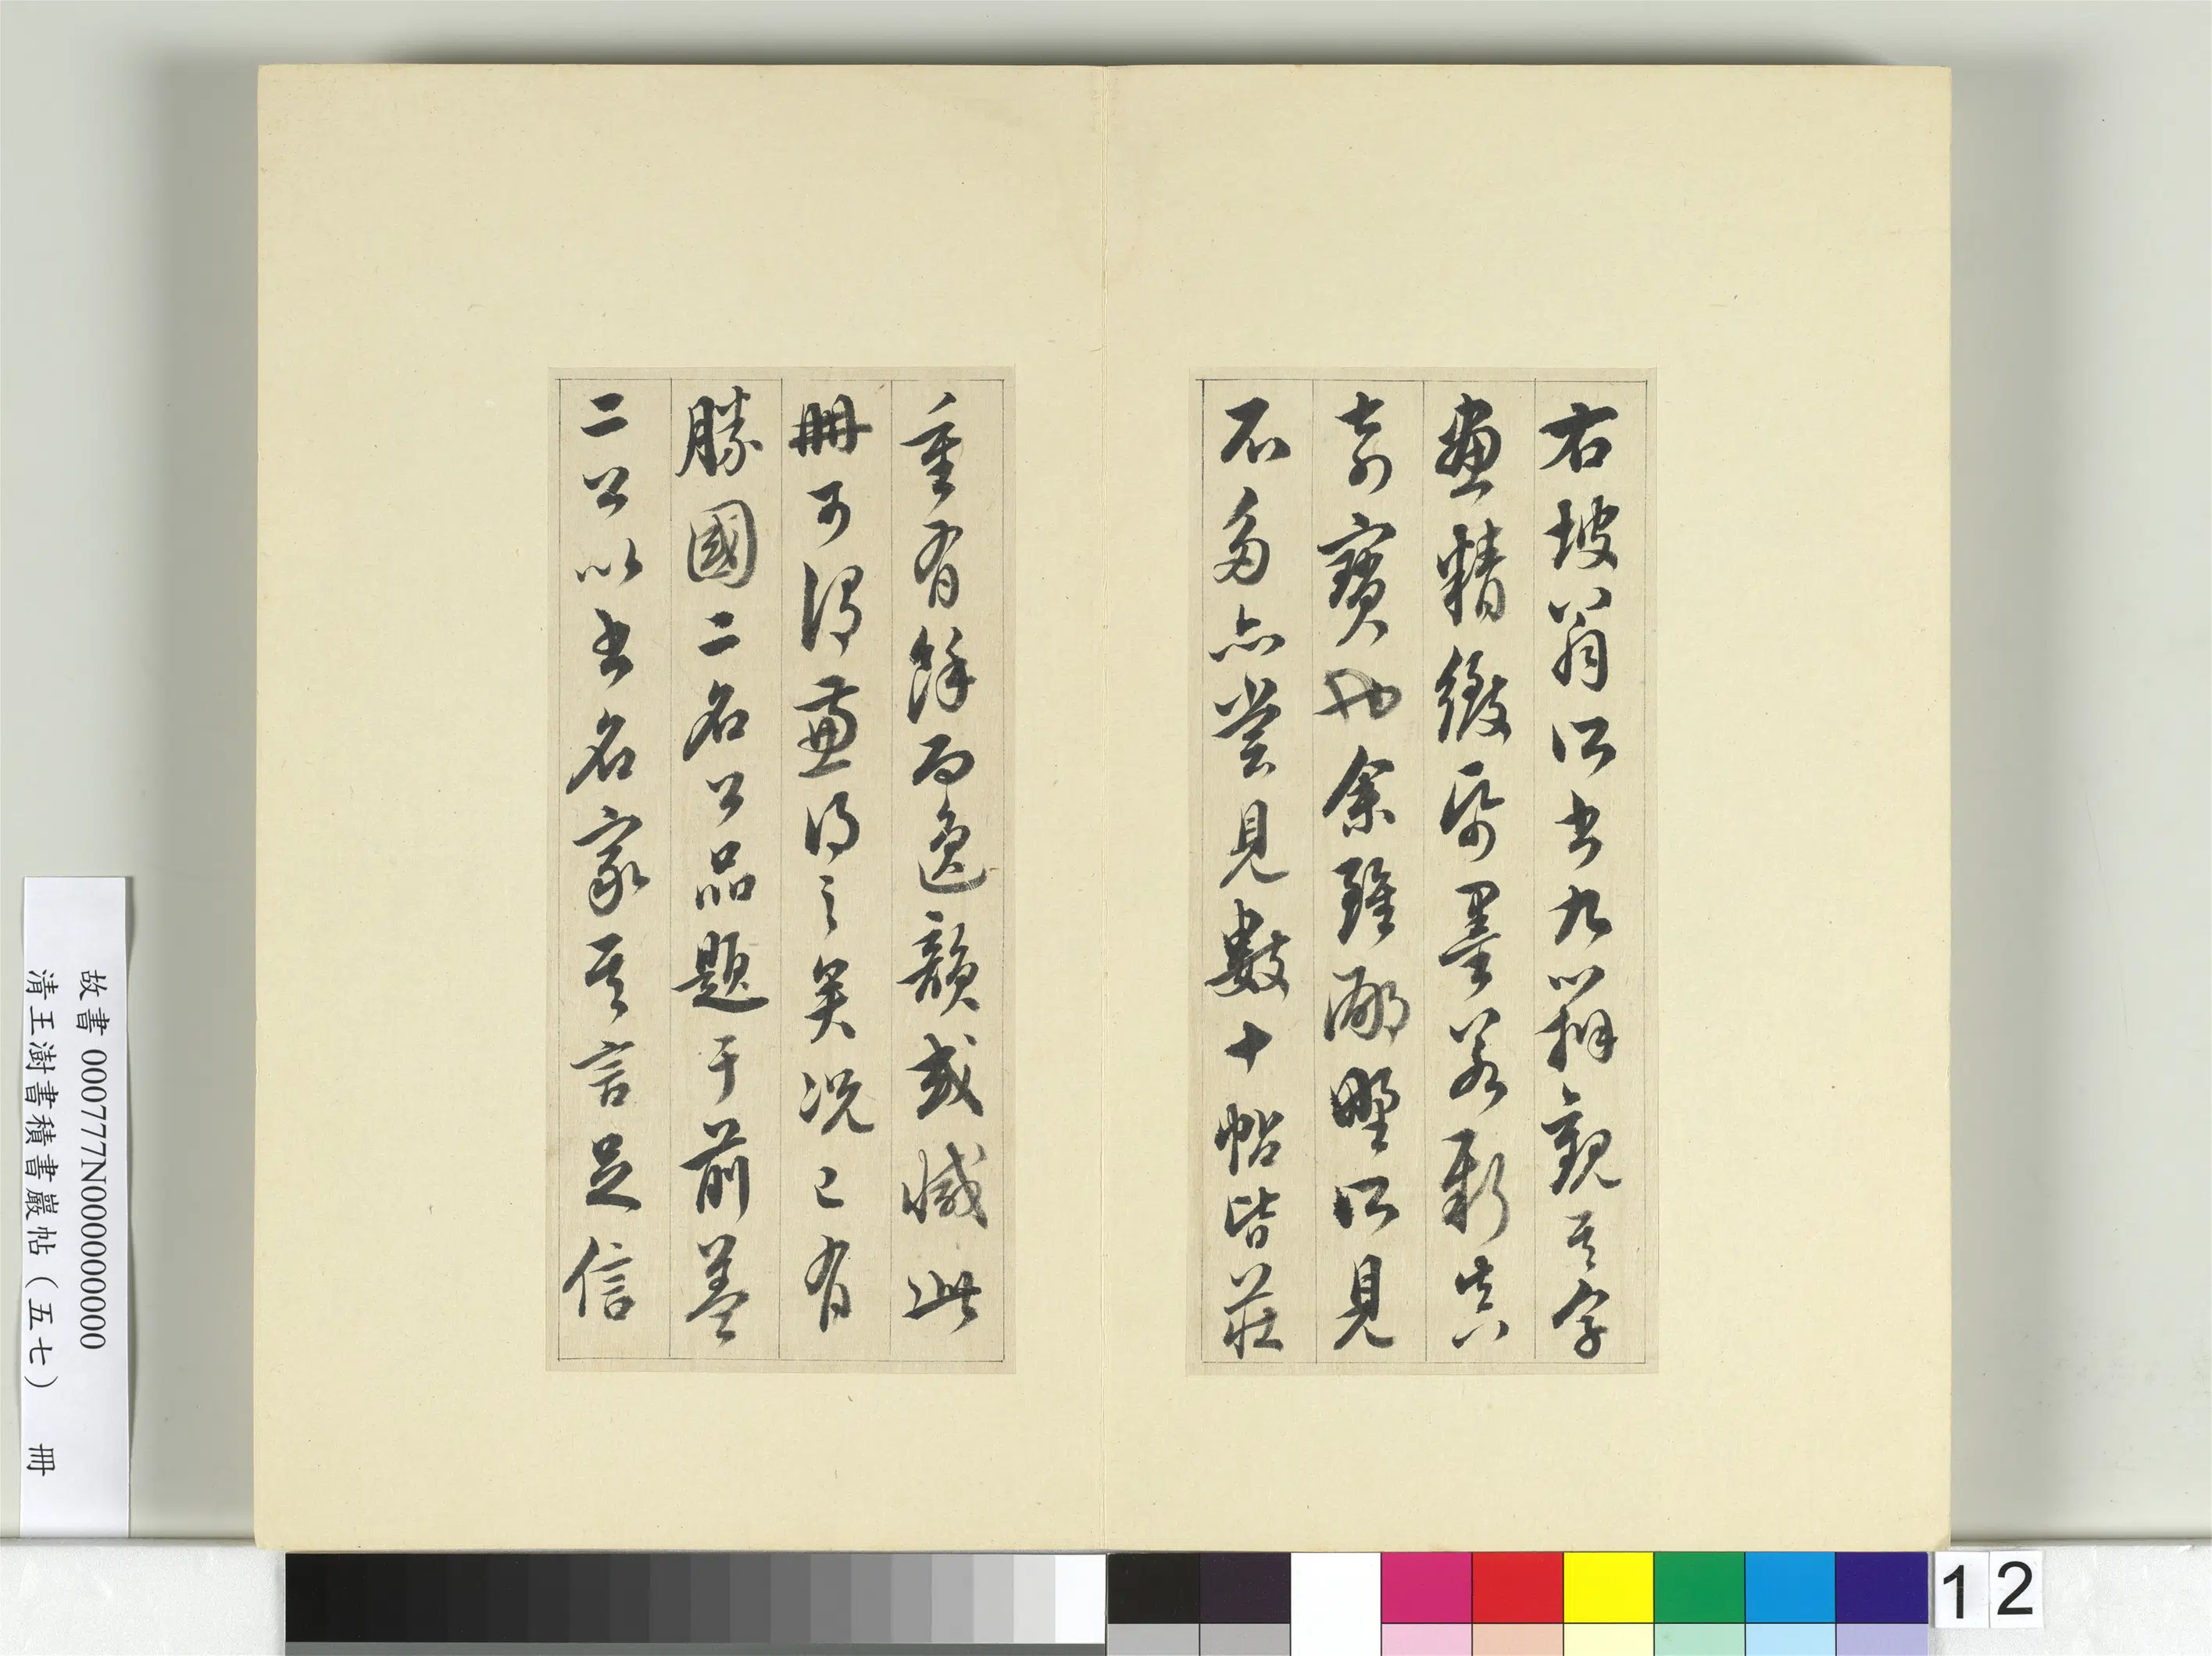 右坡翁所書九辯觀其字
畫精緻紙墨若新真
奇寶也余雖鄙野所見
不多亦嘗見數十帖皆莊
重有餘而逸韻或減此
冊可謂兼得之矣況已有
勝國二名公品題于前蓋
二公以書名家其言足信
故書 000777N000000000
清王澍書積書巖帖（五七） 冊
12